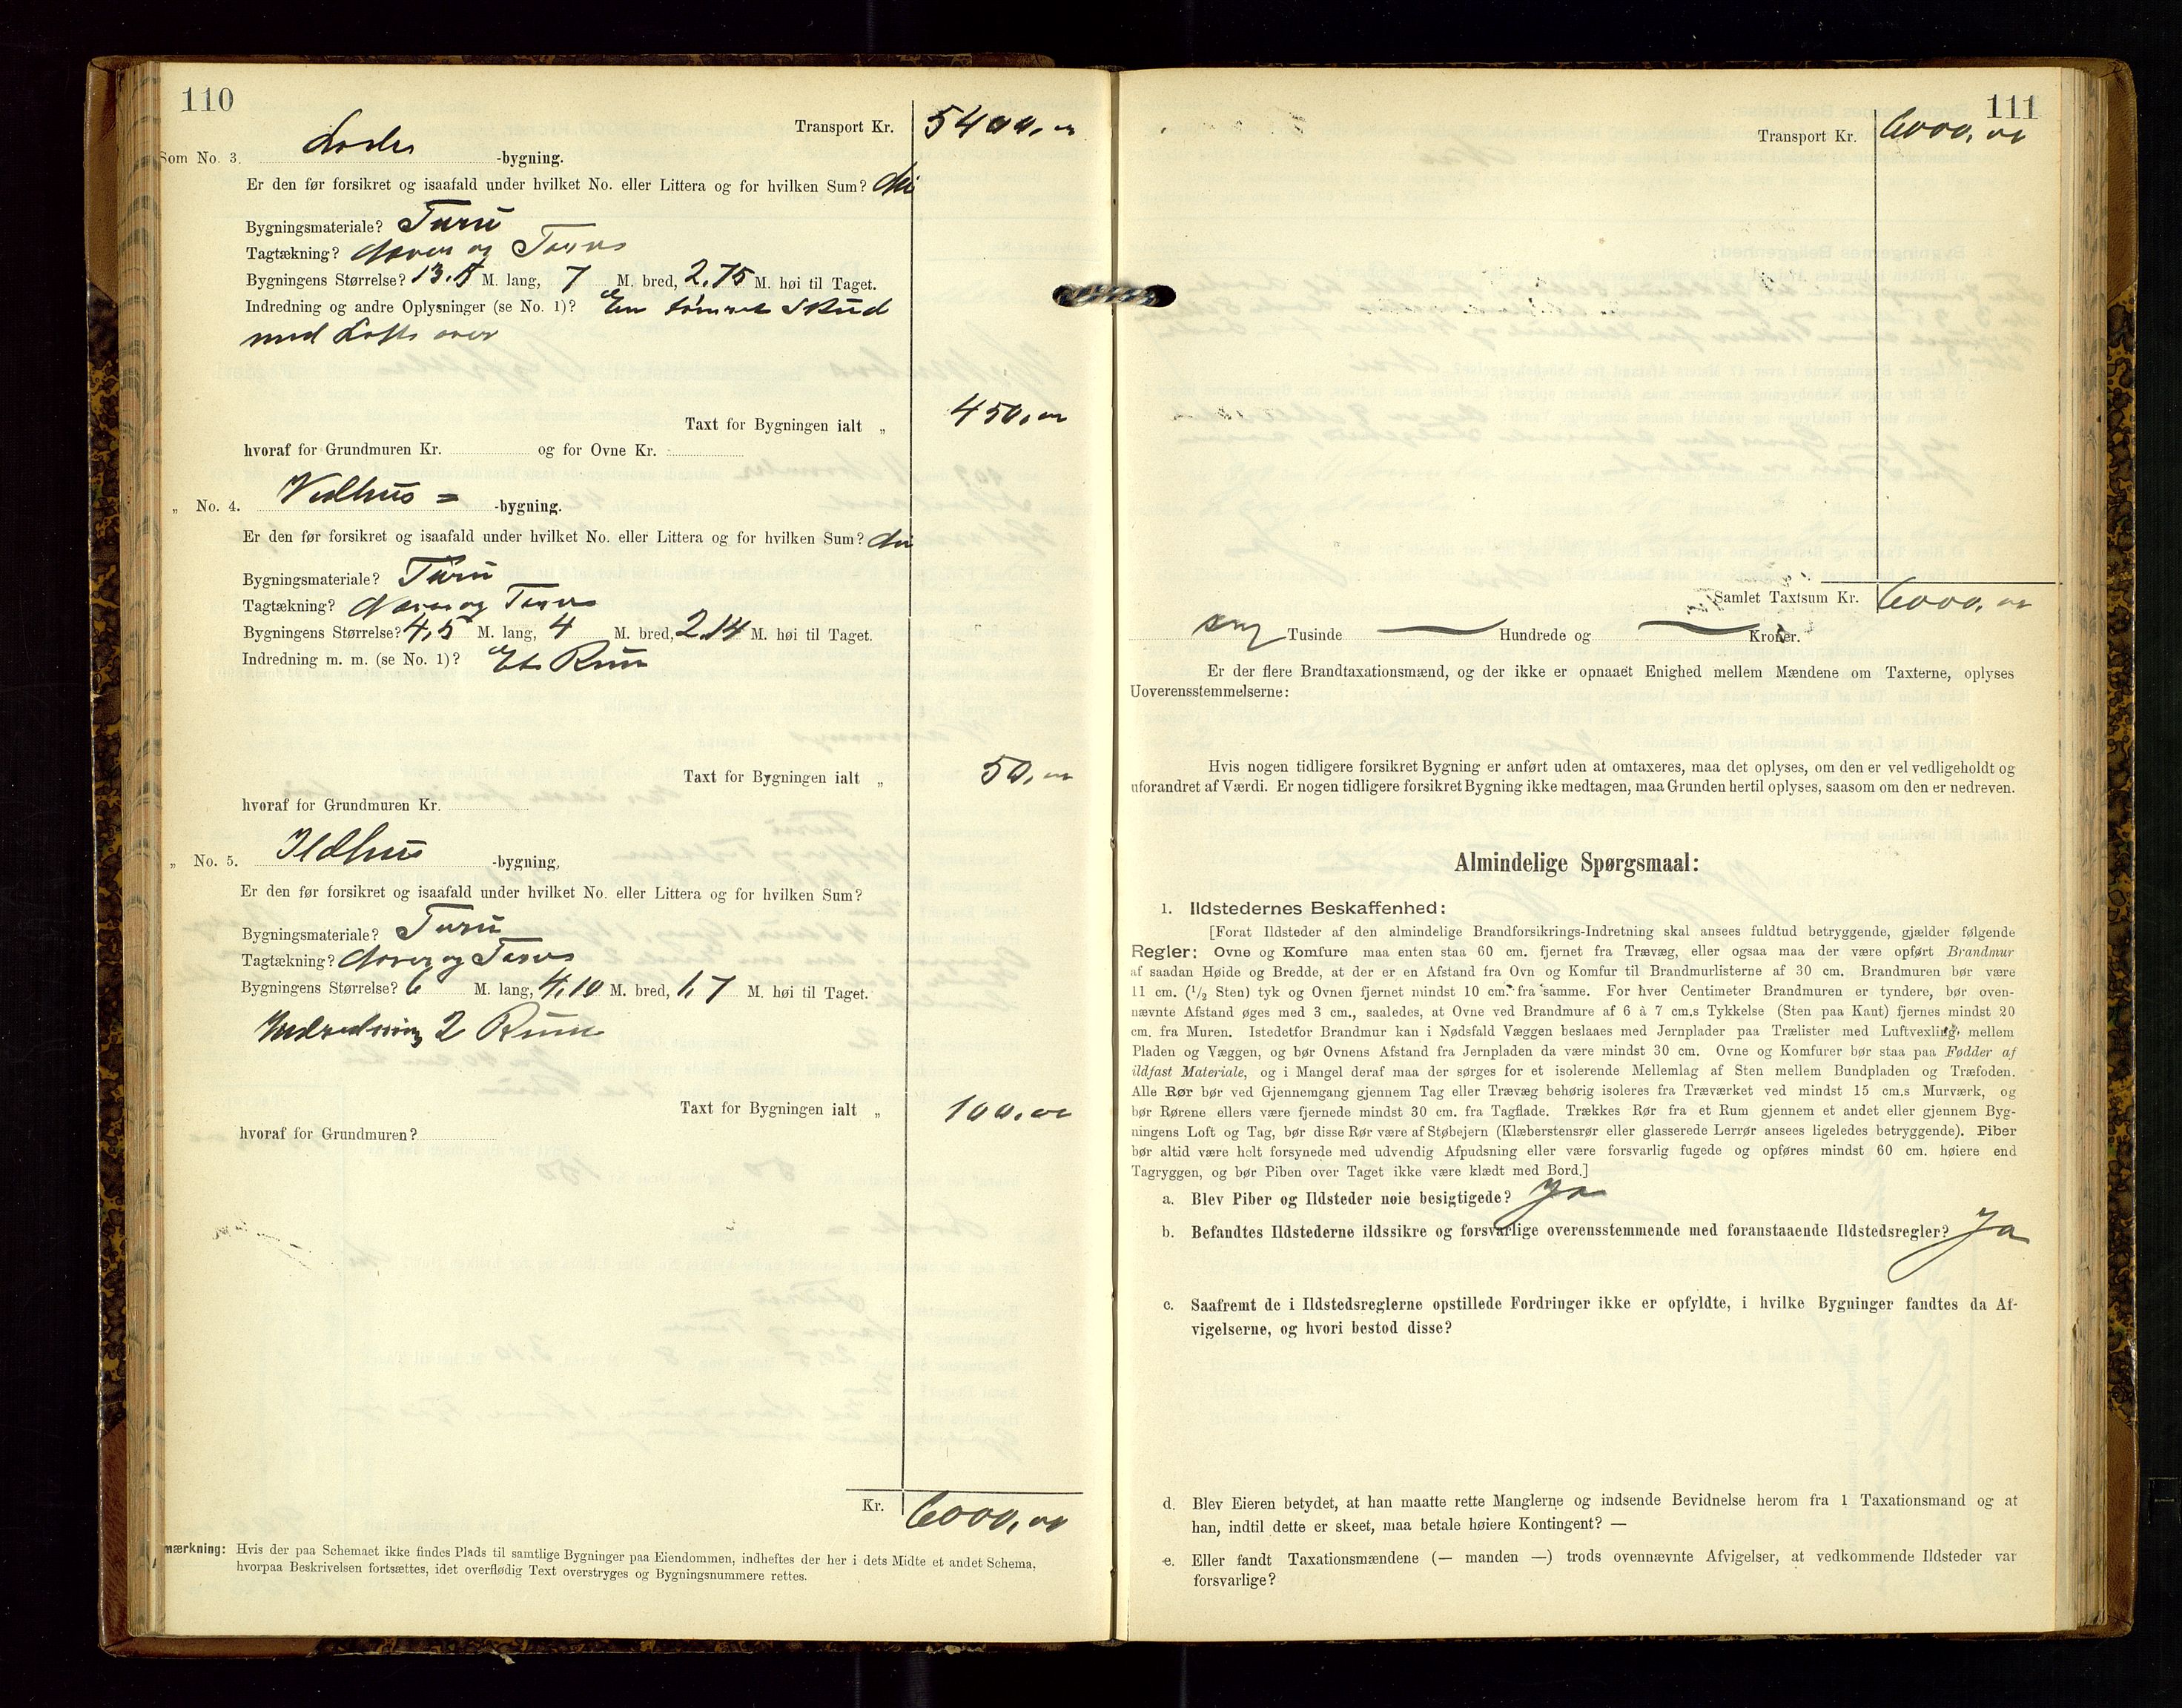 110
Transport Kr. 5400,00
Som No. 3. -bygning.
Er den før forsikret og isaafald under hvilket No. eller Littera og for hvilken Sum? Nei
Bygningsmateriale? Furu
Tagtækning? Næver og Torv
Bygningens Størrelse? 13.5 M. lang, 7 M. bred, 2.75 M. høi til Taget.
Indredning og andre Oplysninger (se No. 1)? En tømret Skud
med Loft over
Taxt for Bygningen ialt „ 450,00
hvoraf for Grundmuren Kr. og for Ovne Kr.
„ No. 4. Vedhus = -bygning.
Er den før forsikret og isaafald under hvilket No. eller Littera og for hvilken Sum? Nei
Bygningsmateriale? Furu
Tagtækning? Næver og Torv
Bygningens Størrelse? 4,5 M. lang, 4 M. bred, 2.14 M. høi til Taget.
Indredning m. m. (se No. 1)? Et Rum
Taxt for Bygningen ialt „ 50,00
hvoraf for Grundmuren Kr.
„ No. 5. Ildhus -bygning,
Er den før forsikret og isaafald under hvilket No. eller Littera og for hvilken Sum?
Bygningsmateriale? Furu
Tagtækning? Næver og Torv
Bygningens Størrelse? 6 M. lang, 4,10 M. bred, 1,7 M. høi til Taget.
Indredning 2 Rum
Taxt for Bygningen ialt „ 100,00
hvoraf for Grundmuren?
Kr. 6000,00
mærkning: Hvis der paa Schemaet ikke findes Plads til samtlige Bygninger paa Eiendommen, indheftes der her i dets Midte et andet Schema,
hvorpaa Beskrivelsen fortsættes, idet overflødig Text overstryges og Bygningsnummere rettes.
111
Transport Kr. 6000,00
Samlet Taxtsum Kr. 6000,00
sex Tusinde — Hundrede og — Kroner.
Er der flere Brandtaxationsmænd, og der ikke er opnaaet Enighed mellem Mændene om Taxterne, oplyses
Uoverensstemmelserne:
Hvis nogen tidligere forsikret Bygning er anført uden at omtaxeres, maa det oplyses, om den er vel vedligeholdt og
uforandret af Værdi. Er nogen tidligere forsikret Bygning ikke medtagen, maa Grunden hertil oplyses, saasom om den er nedreven.
Almindelige Spørgsmaal:
1. Ildstedernes Beskaffenhed:
[Forat Ildsteder af den almindelige Brandforsikrings-Indretning skal ansees fuldtud betryggende, gjælder følgende
Regler: Ovne og Komfure maa enten staa 60 cm. fjernet fra Trævæg, eller ogsaa maa der være opført Brandmur
af saadan Høide og Bredde, at der er en Afstand fra Ovn og Komfur til Brandmurlisterne af 30 cm. Brandmuren bør være
11 cm. (1/2 Sten) tyk og Ovnen fjernet mindst 10 cm. fra samme. For hver Centimeter Brandmuren er tyndere, bør oven-
nævnte Afstand øges med 3 cm., saaledes, at Ovne ved Brandmure af 6 à 7 cm.s Tykkelse (Sten paa Kant) fjernes mindst 20
cm. fra Muren. Istedetfor Brandmur kan i Nødsfald Væggen beslaaes med Jernplader paa Trælister med Luftvexling mellem
Pladen og Væggen, og bør Ovnens Afstand fra Jernpladen da være mindst 30 cm. Ovne og Komfurer bør staa paa Fødder af
ildfast Materiale, og i Mangel deraf maa der sørges for et isolerende Mellemlag af Sten mellem Bundpladen og Træfoden.
Alle Rør bør ved Gjennemgang gjennem Tag eller Trævæg behørig isoleres fra Træværket ved mindst 15 cm.s Murværk, og
bør Rørene ellers være fjernede mindst 30 cm. fra Tagflade. Trækkes Rør fra et Rum gjennem et andet eller gjennem Byg-
ningens Loft og Tag, bør disse Rør være af Støbejern (Klæberstensrør eller glasserede Lerrør ansees ligeledes betryggende). Piber
bør altid være holt forsynede med udvendig Afpudsning eller være forsvarlig fugede og opføres mindst 60 cm. høiere end
Tagryggen, og bør Piben over Taget ikke være klædt med Bord.]
a. Blev Piber og Ildsteder nøie besigtigede? Ja
b. Befandtes Ildstederne ildssikre og forsvarlige overensstemmende med foranstaaende Ildstedsregler? Ja
c. Saafremt de i Ildstedsreglerne opstillede Fordringer ikke er opfyldte, i hvilke Bygninger fandtes da Af-
vigelserne, og hvori bestod disse?
d. Blev Eieren betydet, at han maatte rette Manglerne og indsende Bevidnelse herom fra 1 Taxationsmand og at
han, indtil dette er skeet, maa betale høiere Kontingent? —
e. Eller fandt Taxationsmændene (— manden —) trods ovennævnte Afvigelser, at vedkommende Ildsteder var
forsvarlige?